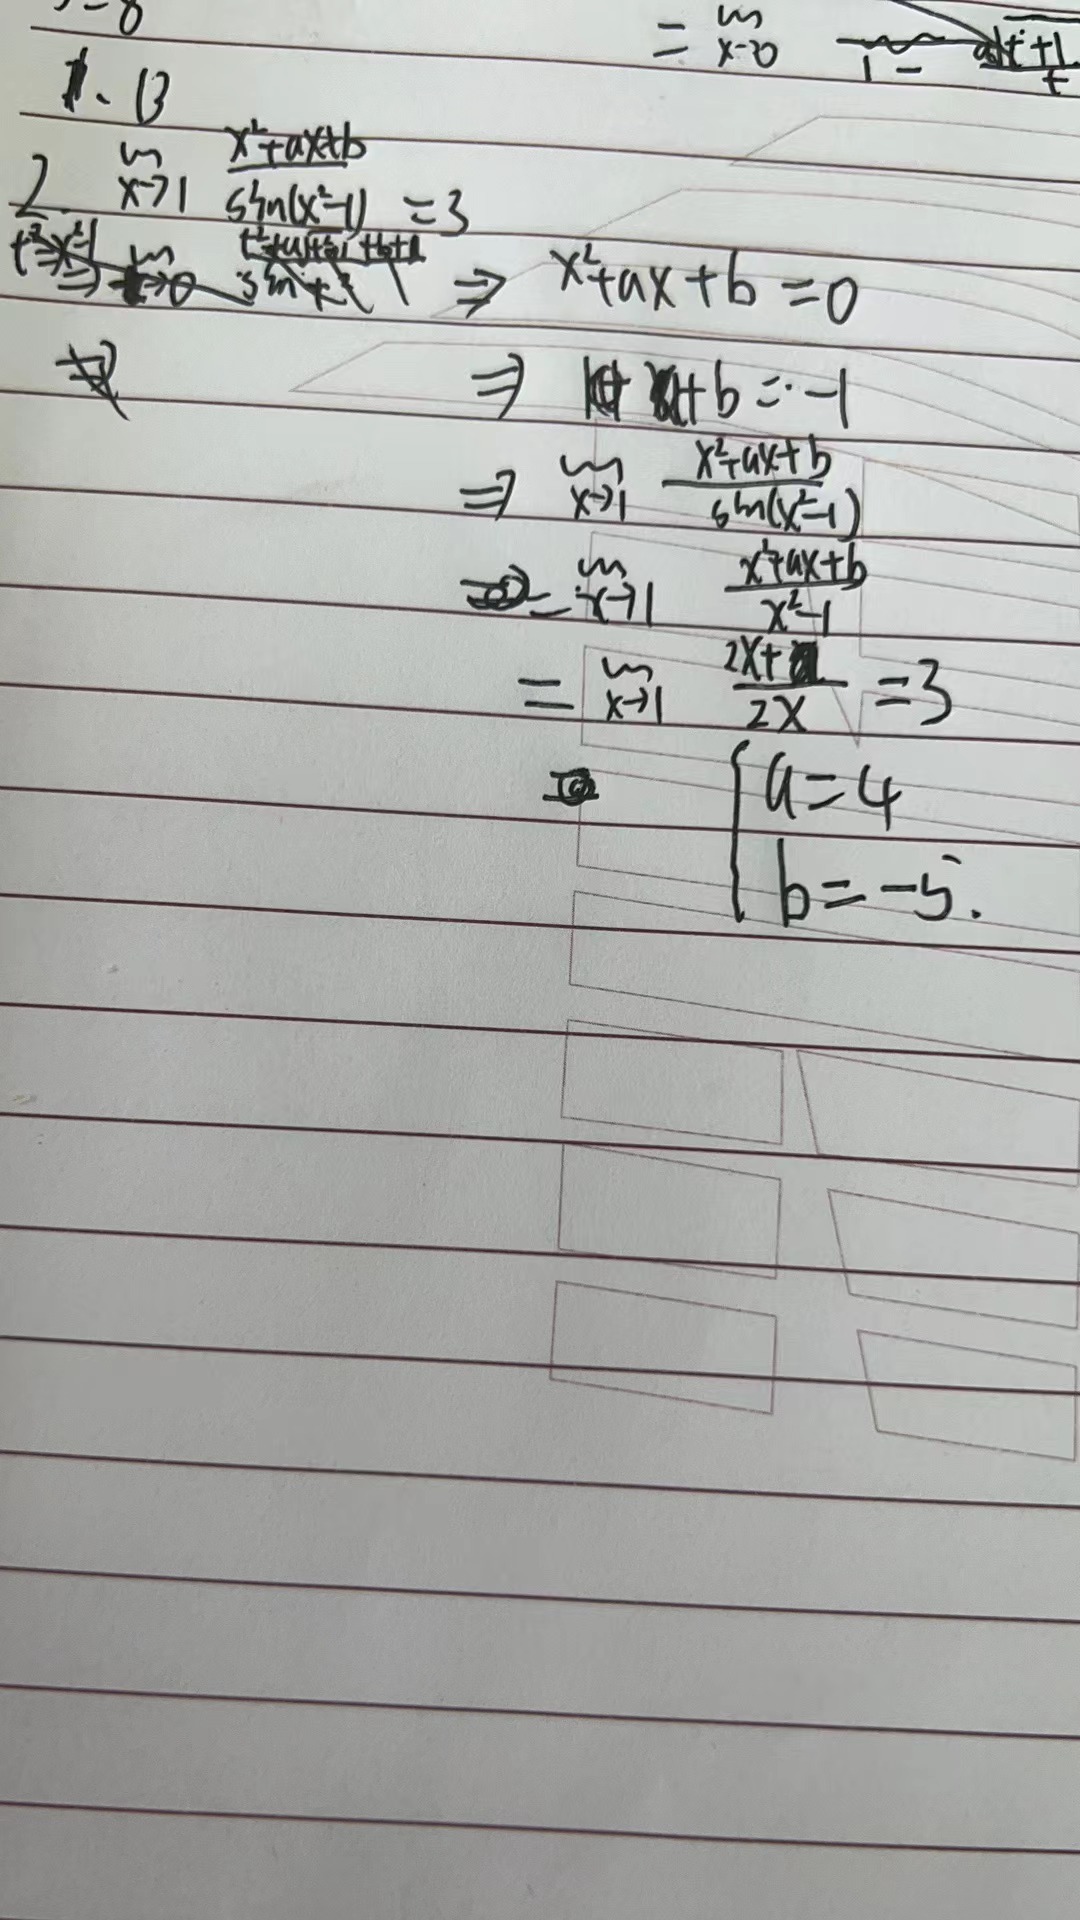 = lim x→0
1. B
2 lim x→1 (x²+ax+b)/(sin(x²-1)) = 3
⇒ x²+ax+b=0
⇒ a+b=-1
⇒ lim x→1 (x²+ax+b)/(sin(x²-1))
= lim x→1 (x²+ax+b)/(x²-1)
= lim x→1 (2x+a)/(2x) = 3
{ a=4
b=-5.